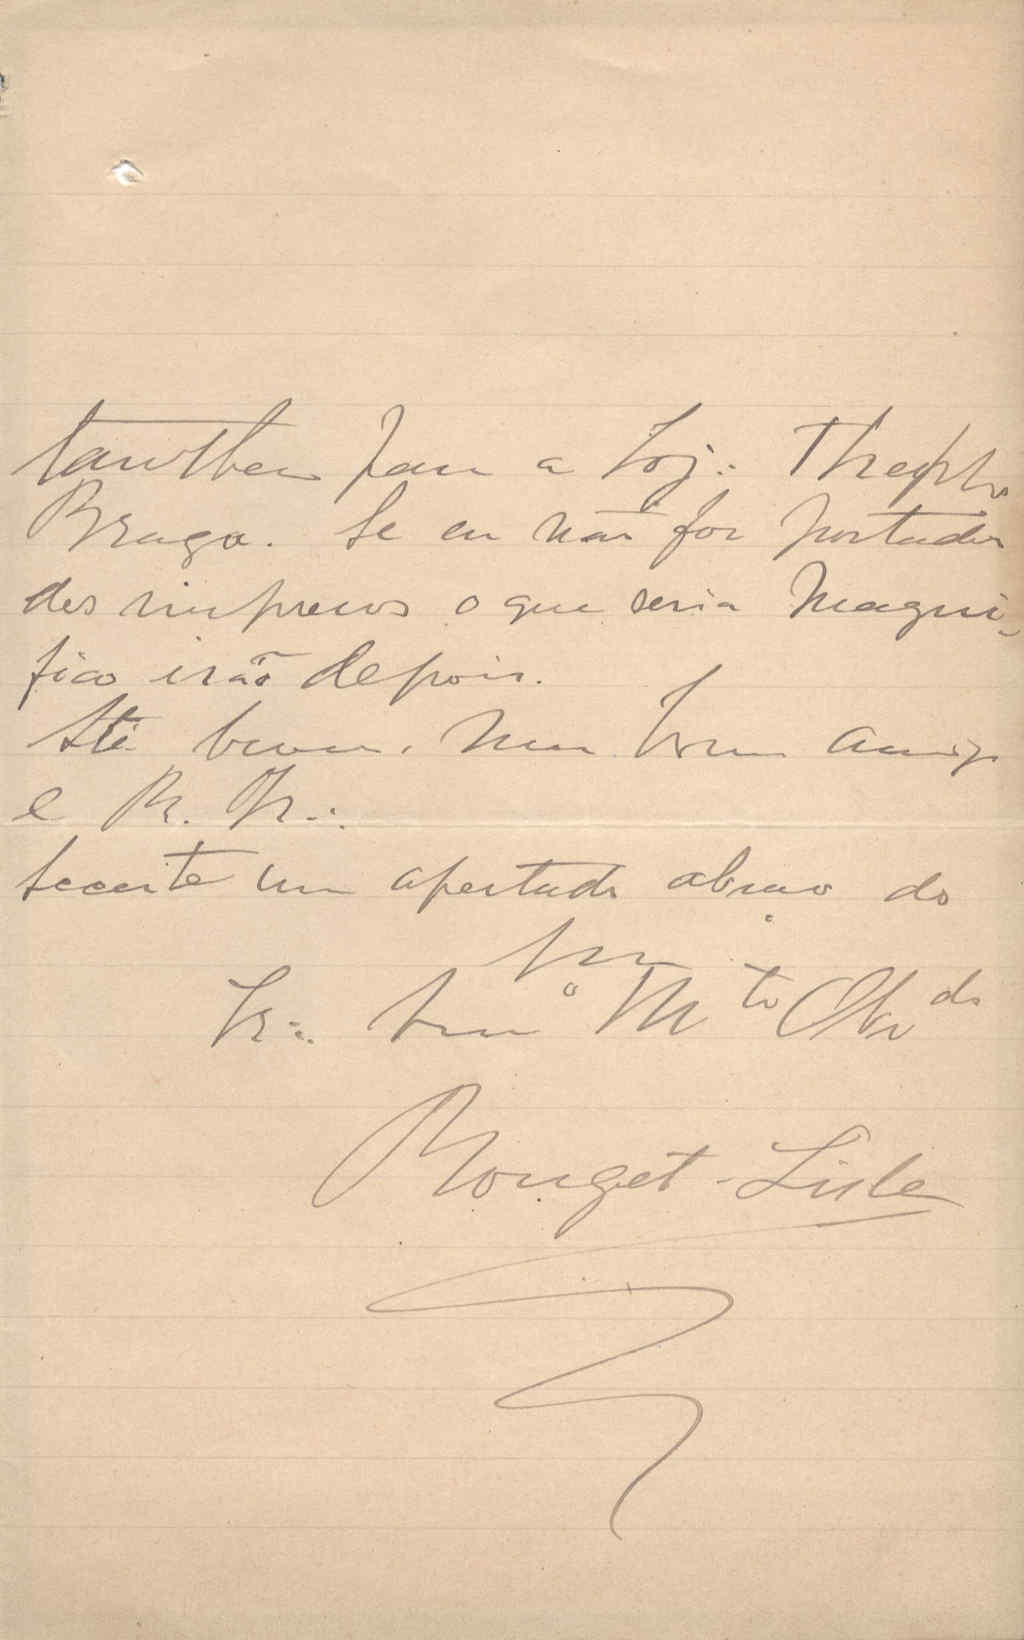 tambem para a Loj∴ Theophilo
Braga. Se eu não for portador
dos impressos o que seria magni-
fico irão depois.
Até breve, meu bom amigo
e Pr. Ir∴
Acceite um apertado abraço do
seu
Ir∴ Amº Mto Obrdo
Rouget-Lisle